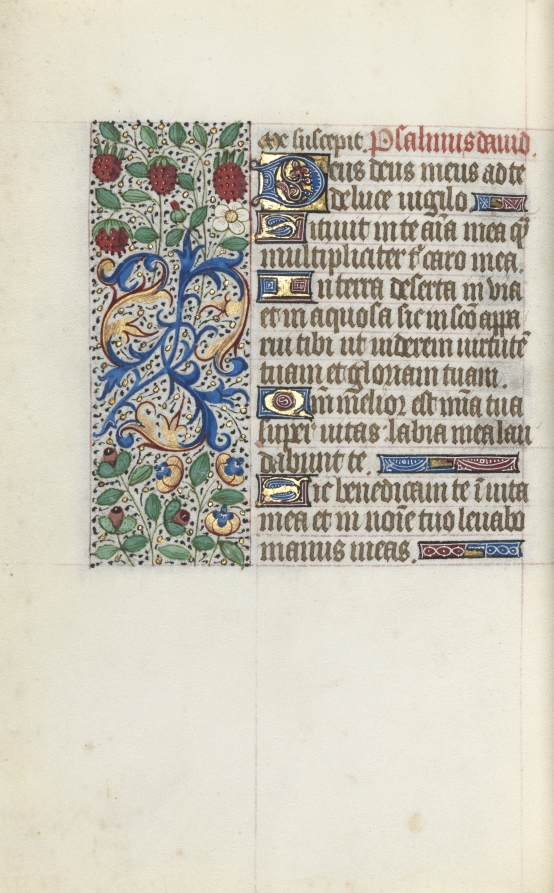 ex suscepit. Psalmus david.
Deus deus meus ad te
de luce vigilo.
Sitivit in te aīa mea q̄
multipliciter t̄ caro mea.
In terra deserta in via
et in aquosa sic in sc̄o appa
rui tibi ut viderem virtutē
tuam et gloriam tuam.
Qm̄ melior est mīa tua
super vitas labia mea lau
dabunt te.
Sic benedicam te ī vita
mea et in noīe tuo levabo
manus meas.